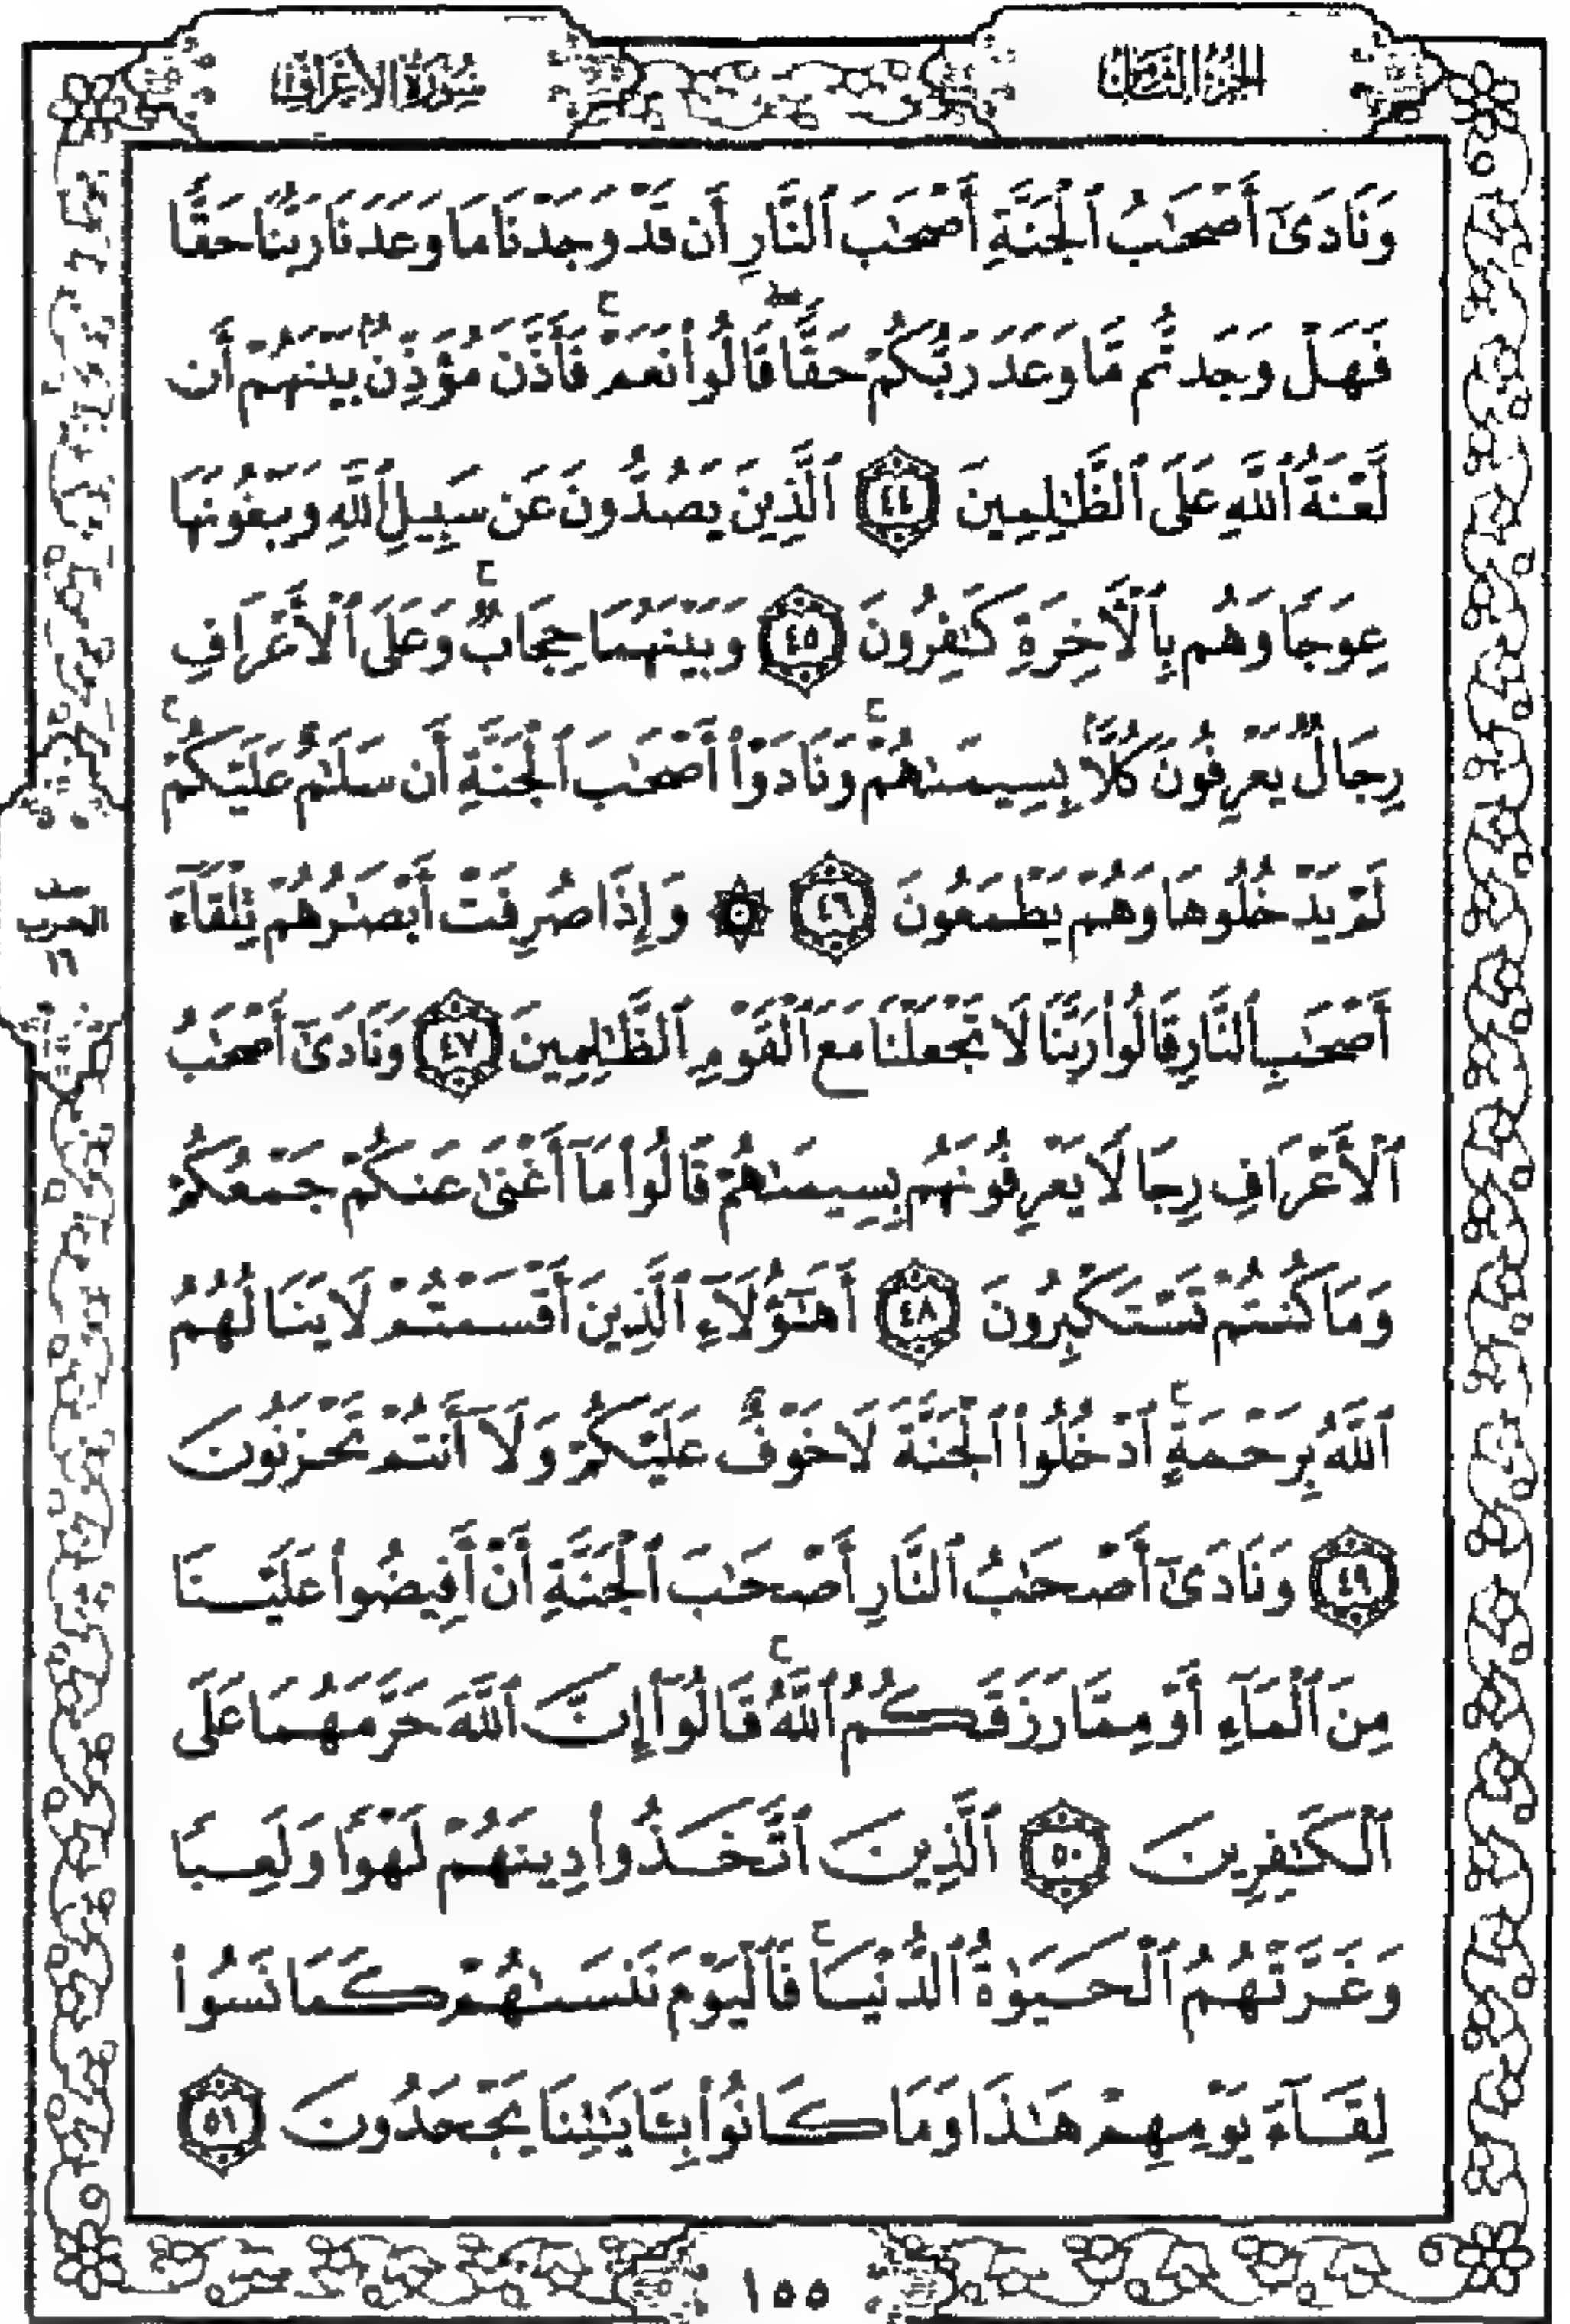 الجزء الثامن
سورة الأعراف
وَنَادَىٰٓ أَصْحَٰبُ ٱلْجَنَّةِ أَصْحَٰبَ ٱلنَّارِ أَن قَدْ وَجَدْنَا مَا وَعَدَنَا رَبُّنَا حَقًّا
فَهَلْ وَجَدتُّم مَّا وَعَدَ رَبُّكُمْ حَقًّا ۖ قَالُوا۟ نَعَمْ ۚ فَأَذَّنَ مُؤَذِّنٌۢ بَيْنَهُمْ أَن
لَّعْنَةُ ٱللَّهِ عَلَى ٱلظَّٰلِمِينَ ٤٤ ٱلَّذِينَ يَصُدُّونَ عَن سَبِيلِ ٱللَّهِ وَيَبْغُونَهَا
عِوَجًا وَهُم بِٱلْأَخِرَةِ كَٰفِرُونَ ٤٥ وَبَيْنَهُمَا حِجَابٌ ۚ وَعَلَى ٱلْأَعْرَافِ
رِجَالٌ يَعْرِفُونَ كُلًّۢا بِسِيمَىٰهُمْ ۚ وَنَادَوْا۟ أَصْحَٰبَ ٱلْجَنَّةِ أَن سَلَٰمٌ عَلَيْكُمْ ۚ
لَمْ يَدْخُلُوهَا وَهُمْ يَطْمَعُونَ ٤٦ ۞ وَإِذَا صُرِفَتْ أَبْصَٰرُهُمْ تِلْقَآءَ
أَصْحَٰبِ ٱلنَّارِ قَالُوا۟ رَبَّنَا لَا تَجْعَلْنَا مَعَ ٱلْقَوْمِ ٱلظَّٰلِمِينَ ٤٧ وَنَادَىٰٓ أَصْحَٰبُ
ٱلْأَعْرَافِ رِجَالًا يَعْرِفُونَهُم بِسِيمَىٰهُمْ قَالُوا۟ مَآ أَغْنَىٰ عَنكُمْ جَمْعُكُمْ
وَمَا كُنتُمْ تَسْتَكْبِرُونَ ٤٨ أَهَٰٓؤُلَآءِ ٱلَّذِينَ أَقْسَمْتُمْ لَا يَنَالُهُمُ
ٱللَّهُ بِرَحْمَةٍ ۚ ٱدْخُلُوا۟ ٱلْجَنَّةَ لَا خَوْفٌ عَلَيْكُمْ وَلَآ أَنتُمْ تَحْزَنُونَ
٤٩ وَنَادَىٰٓ أَصْحَٰبُ ٱلنَّارِ أَصْحَٰبَ ٱلْجَنَّةِ أَنْ أَفِيضُوا۟ عَلَيْنَا
مِنَ ٱلْمَآءِ أَوْ مِمَّا رَزَقَكُمُ ٱللَّهُ ۚ قَالُوٓا۟ إِنَّ ٱللَّهَ حَرَّمَهُمَا عَلَى
ٱلْكَٰفِرِينَ ٥٠ ٱلَّذِينَ ٱتَّخَذُوا۟ دِينَهُمْ لَهْوًا وَلَعِبًا
وَغَرَّتْهُمُ ٱلْحَيَوٰةُ ٱلدُّنْيَا ۚ فَٱلْيَوْمَ نَنسَىٰهُمْ كَمَا نَسُوا۟
لِقَآءَ يَوْمِهِمْ هَٰذَا وَمَا كَانُوا۟ بِـَٔايَٰتِنَا يَجْحَدُونَ ٥١
١٥٥